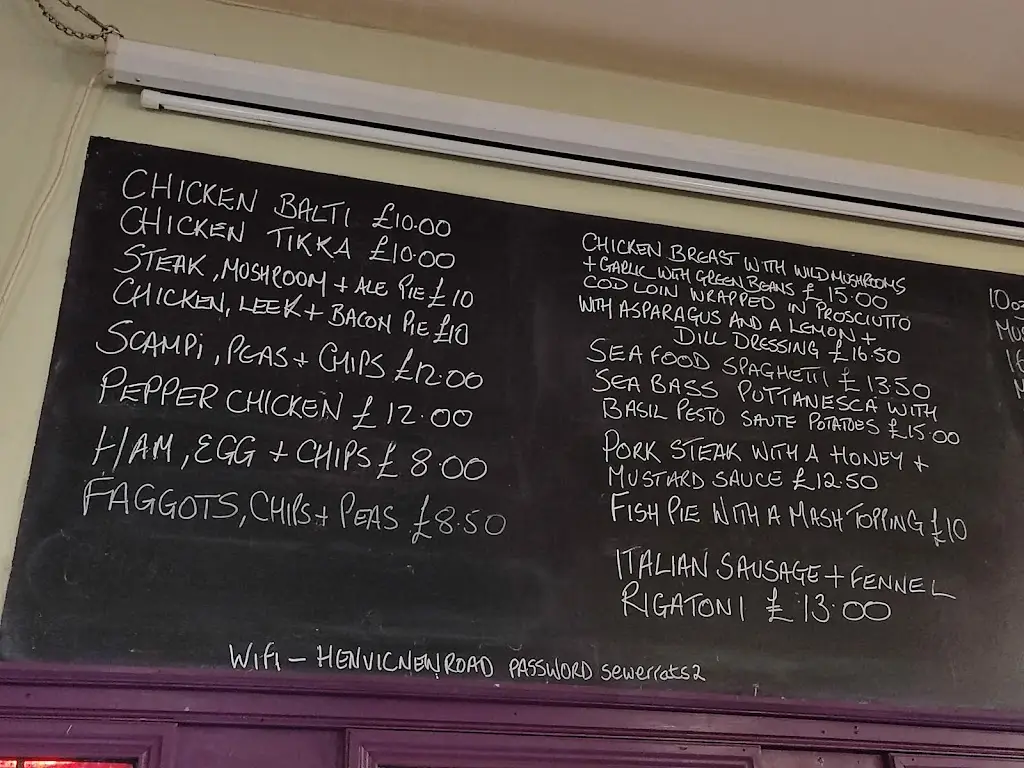 CHICKEN BALTI £10.00
CHICKEN TIKKA £10.00
STEAK, MUSHROOM + ALE PIE £10
CHICKEN, LEEK + BACON PIE £10
SCAMPI, PEAS + CHIPS £12.00
PEPPER CHICKEN £12.00
HAM, EGG + CHIPS £8.00
FAGGOTS, CHIPS + PEAS £8.50
CHICKEN BREAST WITH WILD MUSHROOMS
+ GARLIC WITH GREEN BEANS £15.00
COD LOIN WRAPPED IN PROSCIUTTO
WITH ASPARAGUS AND A LEMON +
DILL DRESSING £16.50
SEAFOOD SPAGHETTI £13.50
SEA BASS PUTTANESCA WITH
BASIL PESTO SAUTE POTATOES £15.00
PORK STEAK WITH A HONEY +
MUSTARD SAUCE £12.50
FISH PIE WITH A MASH TOPPING £10
ITALIAN SAUSAGE + FENNEL
RIGATONI £13.00
WIFI - HENVICNEWROAD PASSWORD sewerrats2